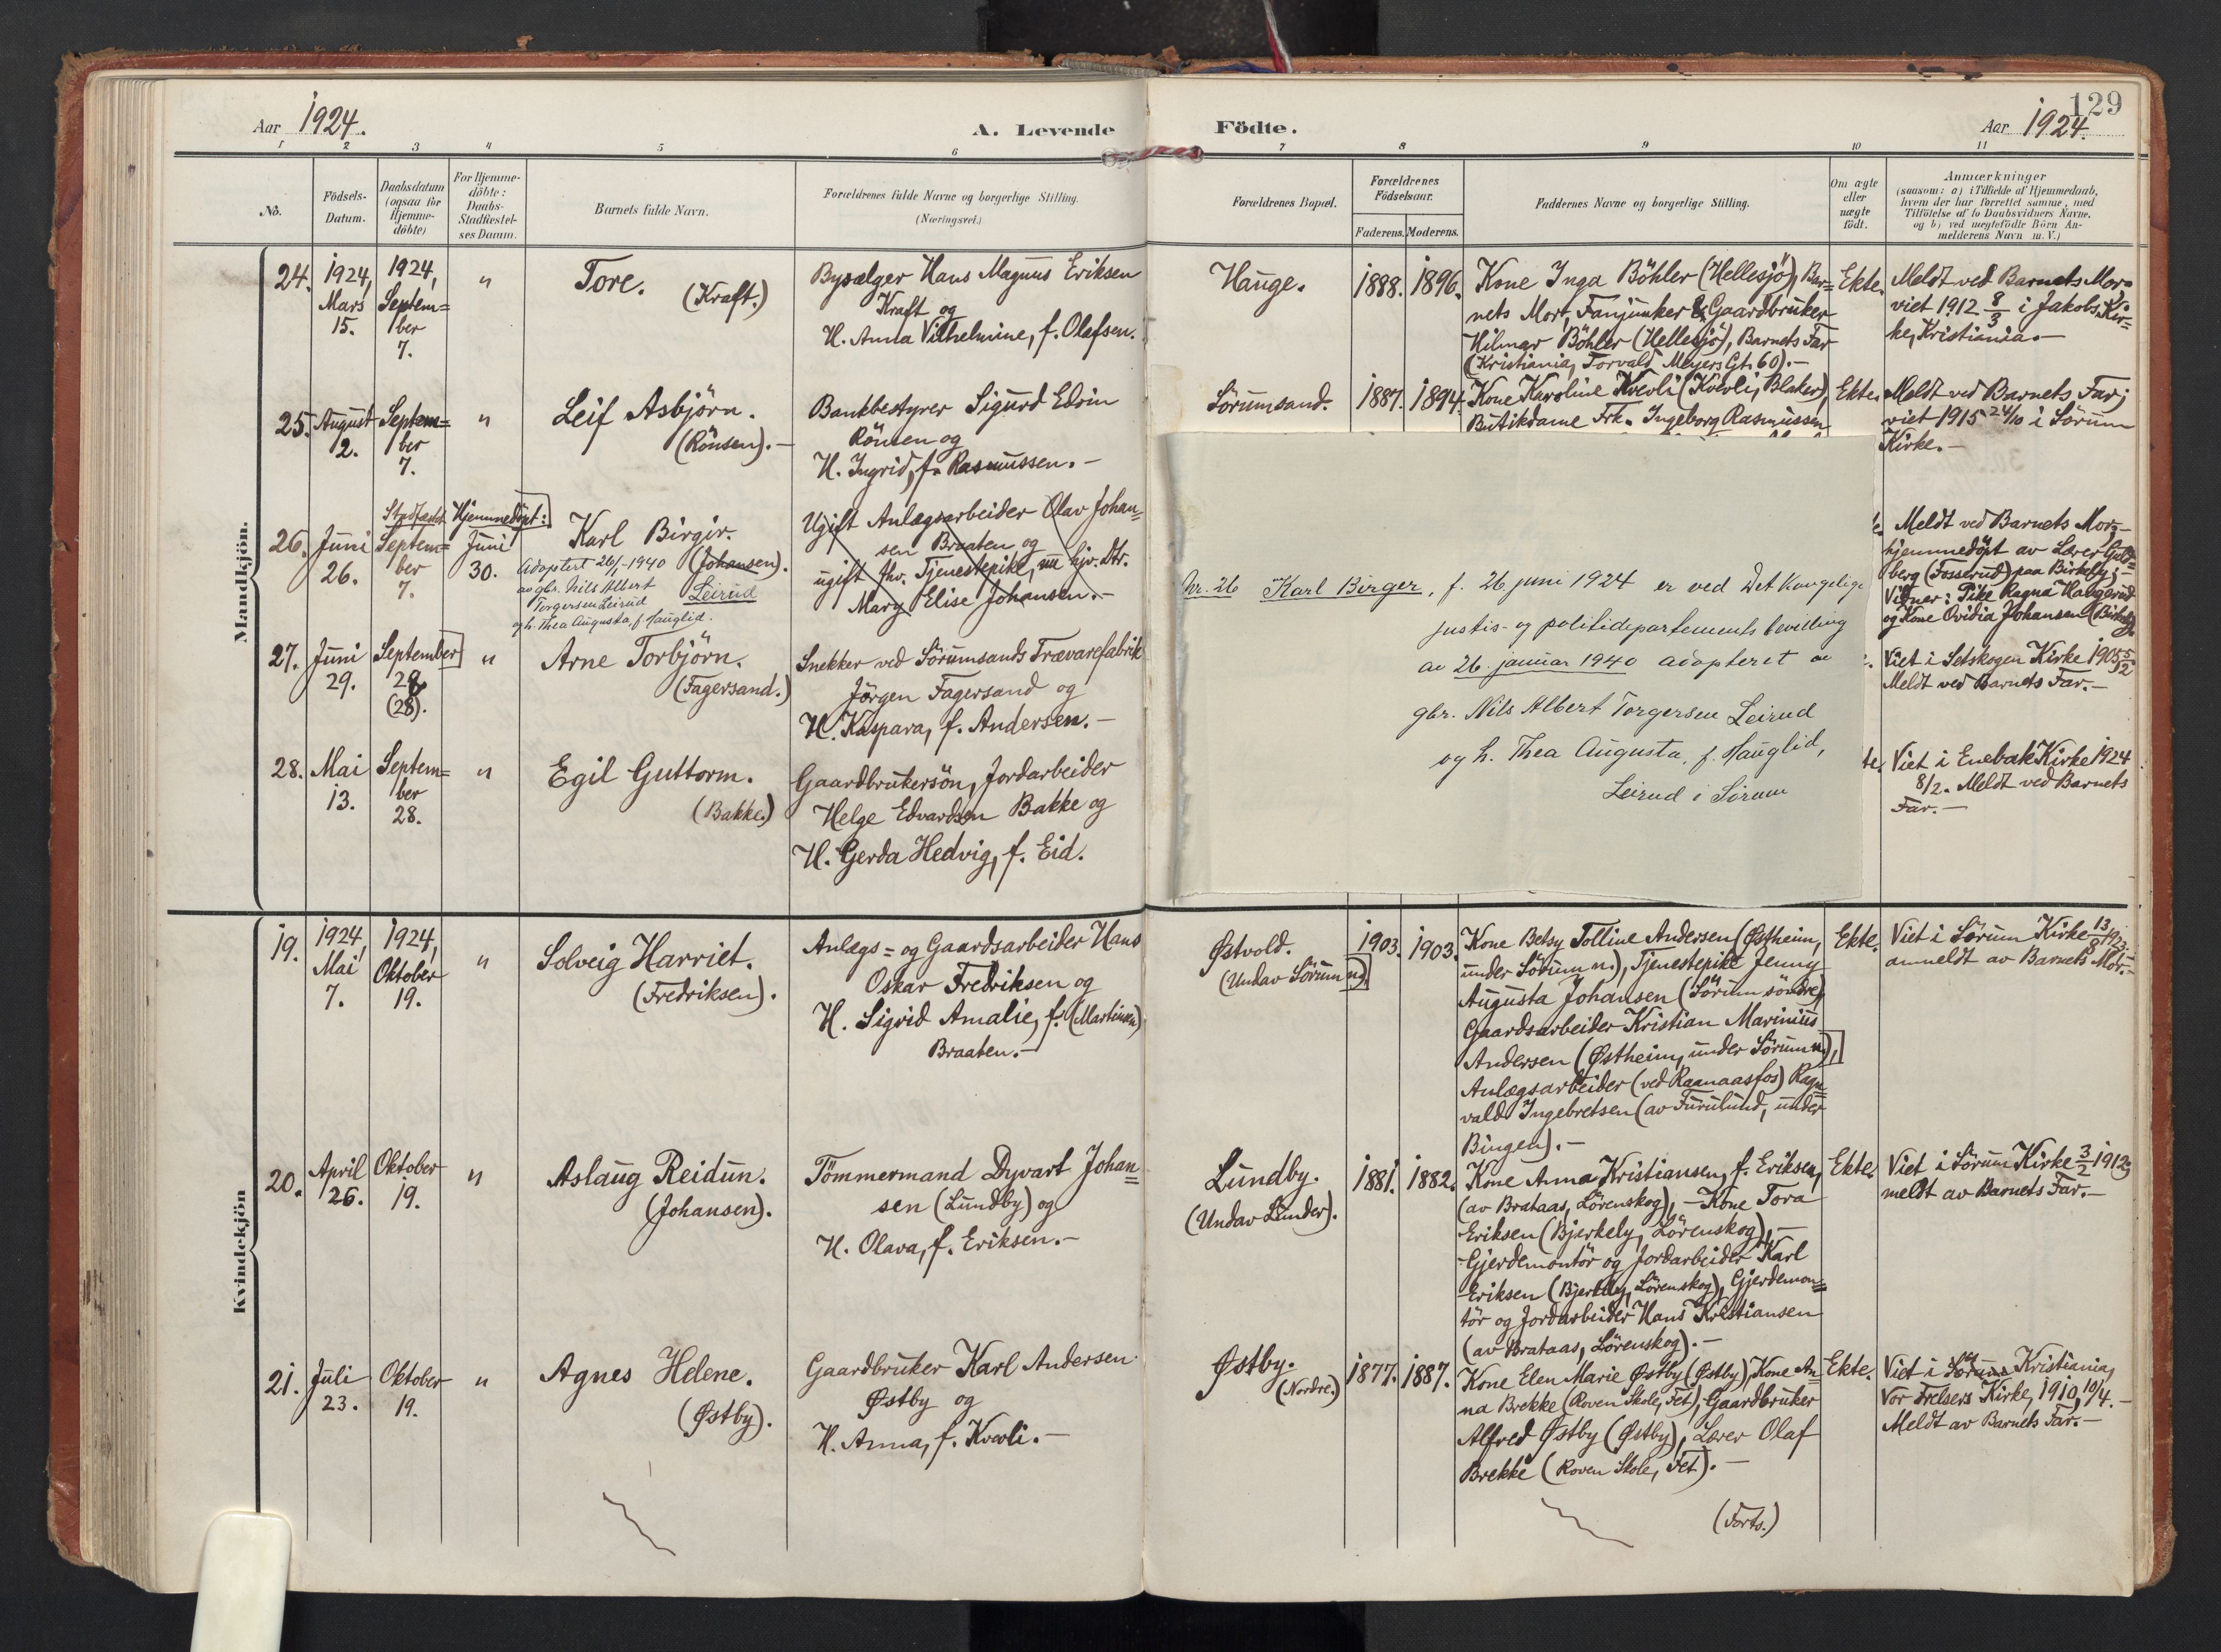 Aar 1924.
A. Levende
Födte.
129
Aar 1924.
1 2 3 4 5 6 7 8 9 10 11
No.
Födsels-
Datum.
Daabsdatum
(ogsaa for
Hjemme-
döbte)
For Hjemme-
döbte:
Daabs-
Stadfæstel-
ses Datum.
Barnets fulde Navn.
Forældrenes fulde Navne og borgerlige Stilling.
(Næringsvei.)
Forældrenes Bopæl.
Forældrenes
Födselsaar.
Faderens. Moderens.
Faddernes Navne og borgerlige Stilling.
Om ægte
eller
uægte
födt.
Anmærkninger
(saasom: a) i Tilfælde af Hjemmedaab,
hvem der har forrettet samme, med
Tilföielse af to Daabsvidners Navne.
og b) ved uægtefödte Börn An-
melderens Navn m. V.)
Mandkjön.
24.
1924,
Mars
15.
1924,
Septem=
ber
7.
"
Tore.
(Kraft.)
Byselger Hans Magnus Eriksen
Kraft og
H. Anna Vilhelmine, f. Olafsen.
Hauge.
1888.
1896.
Kone Inga Böhler (Hellesjö), Bar=
nets Mor, Fanjunker & Gaardbruker
Hilmar Böhler (Hellesjö), Barnets Far
(Kristiania, Torvald Meyers Gt. 60).-
Ekte.
Meldt ved Barnets Mor
viet 1912 8/3 i Jakobs Kir=
ke, Kristiania.-
25.
August
2.
Septem=
ber
7.
"
Leif Asbjörn.
(Rönsen).-
Bankbestyrer Sigurd Edvin
Rönsen og
H. Ingrid, f. Rasmussen.-
Sörumsand.
1887.
1894.
Kone Karoline Kvevli (Kvevli, Blaker),
Butikdame Frk. Ingeborg Rasmussen
Ekte.
Meldt ved Barnets Far;
viet 1915 24/10 i Sörum
Kirke.-
26.
Juni
26.
Stadfæstet
Septem=
ber
7.
Hjemmedöpt:
Juni
30.
Karl Birgir.
(Johansen).
Leirud
Adoptert 26/1-1940
av gbr. Nils Albert
Torgersen Leirud
og h. Thea Augusta, f. Hauglid.
Ugift Anlægsarbeider Olav Johan=
sen Braaten og
ugift fhv. Tjenestepike, nu hjv. Dtr.
Mary Elise Johansen.-
Meldt ved Barnets Mor;-
hjemmedöpt av Lærer Guld=
berg (Fosserud) paa Birkely;-
Vidner: Pike Ragna Haugerud
og Kone Ovidia Johansen (Birkely).
Nr. 26 Karl Birger, f. 26 juni 1924 er ved Det Kongelige
justis- og politidepartements bevilling
av 26. januar 1940 adopteret av
gbr. Nils Albert Torgersen Leirud
og h. Thea Augusta, f. Hauglid,
Leirud i Sörum
27.
Juni
29.
September
28
(28).
"
Arne Torbjörn.
(Fagersand.)
Snekker ved Sörumsands Trævarefabrik
Jörgen Fagersand og
H. Kaspara, f. Andersen.-
Viet i Setskogen Kirke 1905 5/12
Meldt ved Barnets Far.-
28.
Mai
13.
Septem=
ber
28.
"
Egil Guttorm.
(Bakke.)
Gaardbrukersön, Jordarbeider
Helge Edvardsen Bakke og
H. Gerda Hedvig, f. Eid.
te.
Viet i Enebak Kirke 1924
8/2. Meldt ved Barnets
Far.-
Kvindekjön
19.
1924,
Mai
7.
1924,
Oktober
19.
"
Solveig Harriet.
(Fredriksen).
Anlægs= og Gaardsarbeider Hans
Oskar Fredriksen og
H. Sigrid Amalie, f. (Martinsen)
Braaten.-
Østvold.
(Undav Sörum n.)
1903.
1903.
Kone Betsy Tolline Andersen (Østheim,
under Sörum n.), Tjenestepike Jenny
Augusta Johansen (Sörum söndre),
Gaardsarbeider Kristian Marinius
Andersen (Østheim, under Sörum n.),
Anlægsarbeider (ved Raanaasfos) Ragn=
vald Ingebretsen (av Furulund, under
Bingen).-
Ekte.
Viet i Sörum Kirke 13/8 1923.-
anmeldt av Barnets Mor.-
20.
April
26.
Oktober
19.
"
Aslaug Reidun.
(Johansen).
Tömmermand Dyvart Johan=
sen (Lundby) og
H. Olava, f. Eriksen.-
Lundby.
(Undav Lunder).
1881.
1882.
Kone Anna Kristiansen, f. Eriksen,
(av Brataas, Lörenskog),- Kone Tora
Eriksen (Bjerkely, Lörenskog),-
Gjerdemontör og Jordarbeider Karl
Eriksen (Bjerkely, Lörenskog), Gjerdemon=
tör og Jordarbeider Hans Kristiansen
(av Brataas, Lörenskog).-
Ekte.
Viet i Sörum Kirke 3/2 1912;
meldt av Barnets Far.-
21.
Juli
23.
Oktober
19.
"
Agnes Helene.
(Østby).
Gaardbruker Karl Andersen
Østby og
H. Anna, f. Kvevli.-
Østby.
(Nordre.)
1877.
1887.
Kone Elen Marie Østby (Østby), Kone An=
na Brekke (Roven Skole, Fet), Gaardbruker
Alfred Østby (Østby), Lærer Olaf
Brekke (Roven Skole, Fet).-
(Forts.)
Ekte.
Viet i Sörum Kristiania,
Vor Frelsers Kirke, 1910, 10/4.-
Meldt av Barnets Far.-